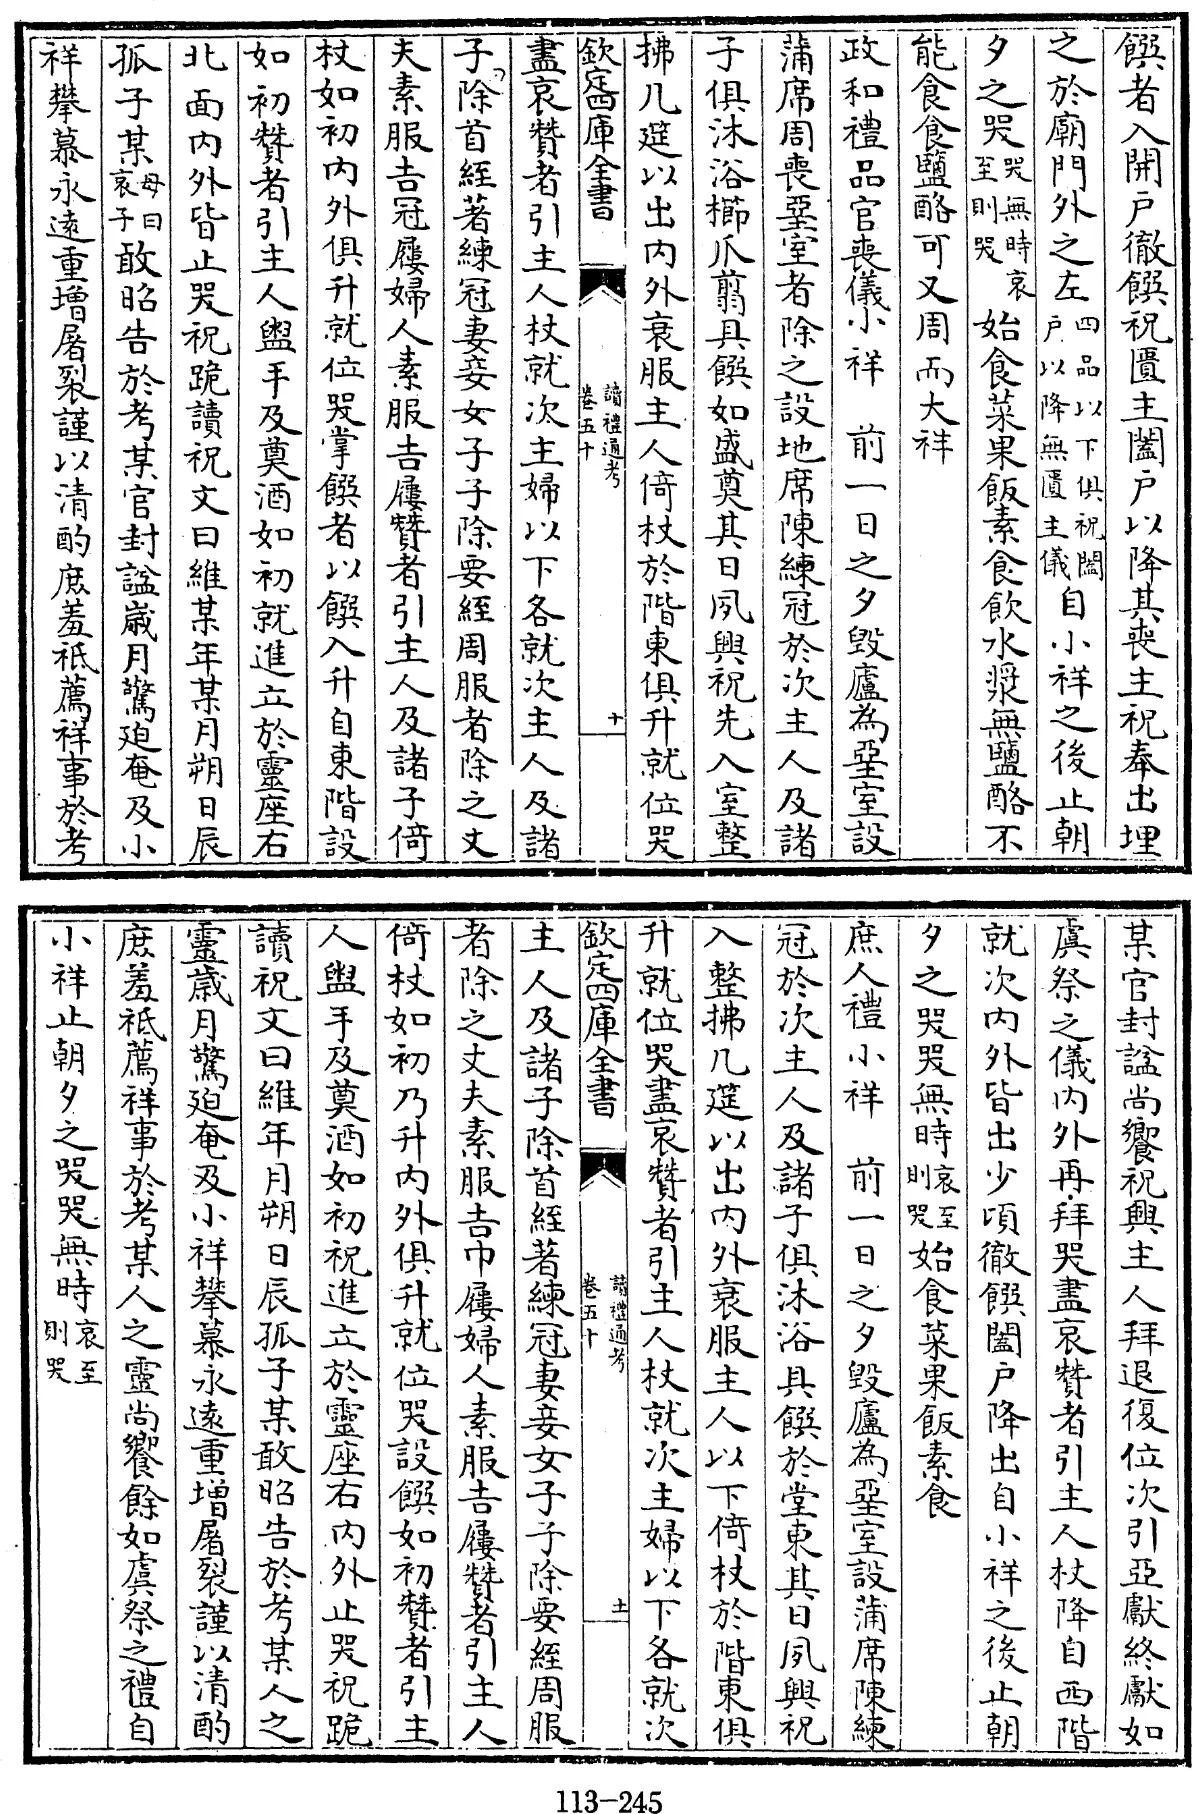 饌者入開戶徹饌祝匱主闔戶以降其喪主祝奉出埋
之於廟門外之左四品以下俱祝闔戶以降無匱主儀自小祥之後止朝
夕之哭哭無時哀至則哭始食菜果飯素食飲水漿無鹽酪不
能食食鹽酪可又周而大祥
政和禮品官喪儀小祥　前一日之夕毀廬為堊室設
蒲席周喪堊室者除之設地席陳練冠於次主人及諸
子俱沐浴櫛爪翦具饌如盛奠其日夙興祝先入室整
拂几筵以出內外衰服主人倚杖於階東俱升就位哭
欽定四庫全書　讀禮通考卷五十　十
盡哀贊者引主人杖就次主婦以下各就次主人及諸
子除首絰著練冠妻妾女子子除要絰周服者除之丈
夫素服吉冠屨婦人素服吉屨贊者引主人及諸子倚
杖如初內外俱升就位哭掌饌者以饌入升自東階設
如初贊者引主人盥手及奠酒如初就進立於靈座右
北面內外皆止哭祝跪讀祝文曰維某年某月朔日辰
孤子某母曰哀子敢昭告於考某官封諡歲月驚迫奄及小
祥攀慕永遠重增屠裂謹以清酌庶羞祗薦祥事於考
某官封諡尚饗祝興主人拜退復位次引亞獻終獻如
虞祭之儀內外再拜哭盡哀贊者引主人杖降自西階
就次內外皆出少項徹饌闔戶降出自小祥之後止朝
夕之哭哭無時哀至則哭始食菜果飯素食
庶人禮小祥　前一日之夕毀廬為堊室設蒲席陳練
冠於次主人及諸子俱沐浴具饌於堂東其日夙興祝
入整拂几筵以出內外衰服主人以下倚杖於階東俱
升就位哭盡哀贊者引主人杖就次主婦以下各就次
欽定四庫全書　讀禮通考卷五十　十一
主人及諸子除首絰著練冠妻妾女子子除要絰周服
者除之丈夫素服吉巾屨婦人素服吉屨贊者引主人
倚杖如初乃升內外俱升就位哭設饌如初贊者引主
人盥手及奠酒如初祝進立於靈座右內外止哭祝跪
讀祝文曰維年月朔日辰孤子某敢昭告於考某人之
靈歲月驚迫奄及小祥攀慕永遠重增屠裂謹以清酌
庶羞祗薦祥事於考某人之靈尚饗餘如虞祭之禮自
小祥止朝夕之哭哭無時哀至則哭
113-245